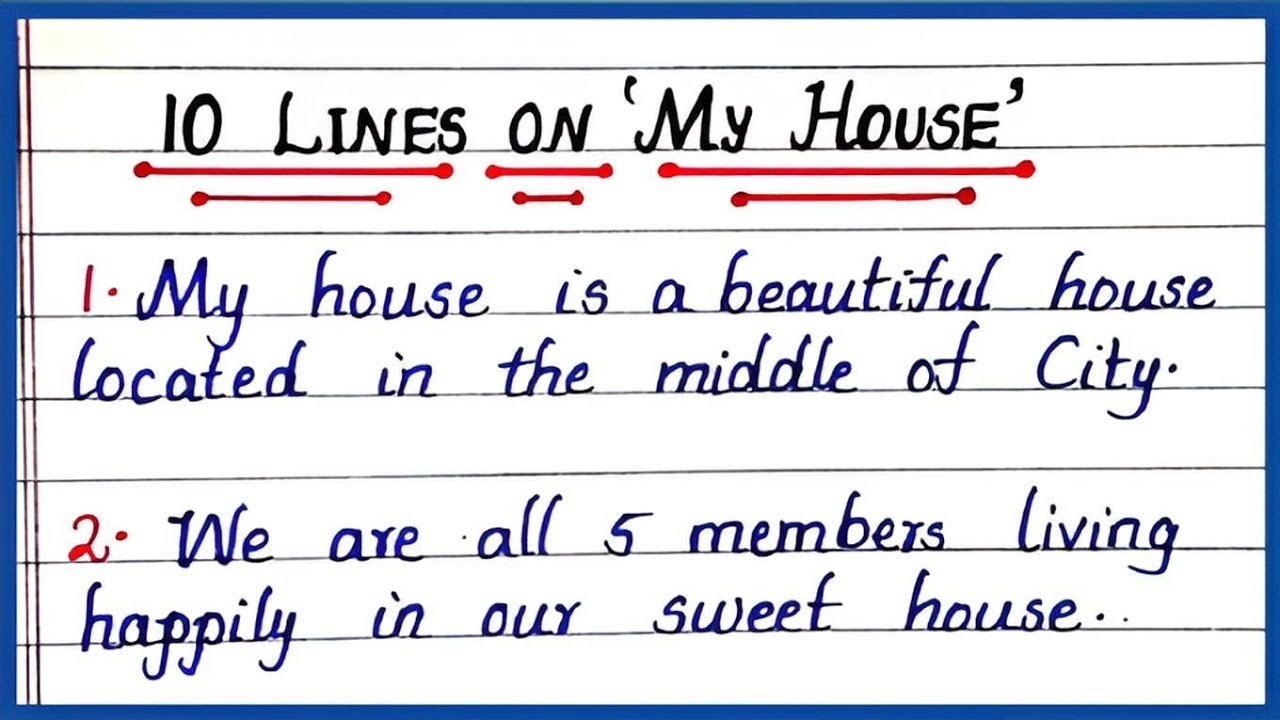 10 LINES ON 'My HOUSE'
1. My house is a beautiful house
located in the middle of City.
2. We are all 5 members living
happily in our sweet house..